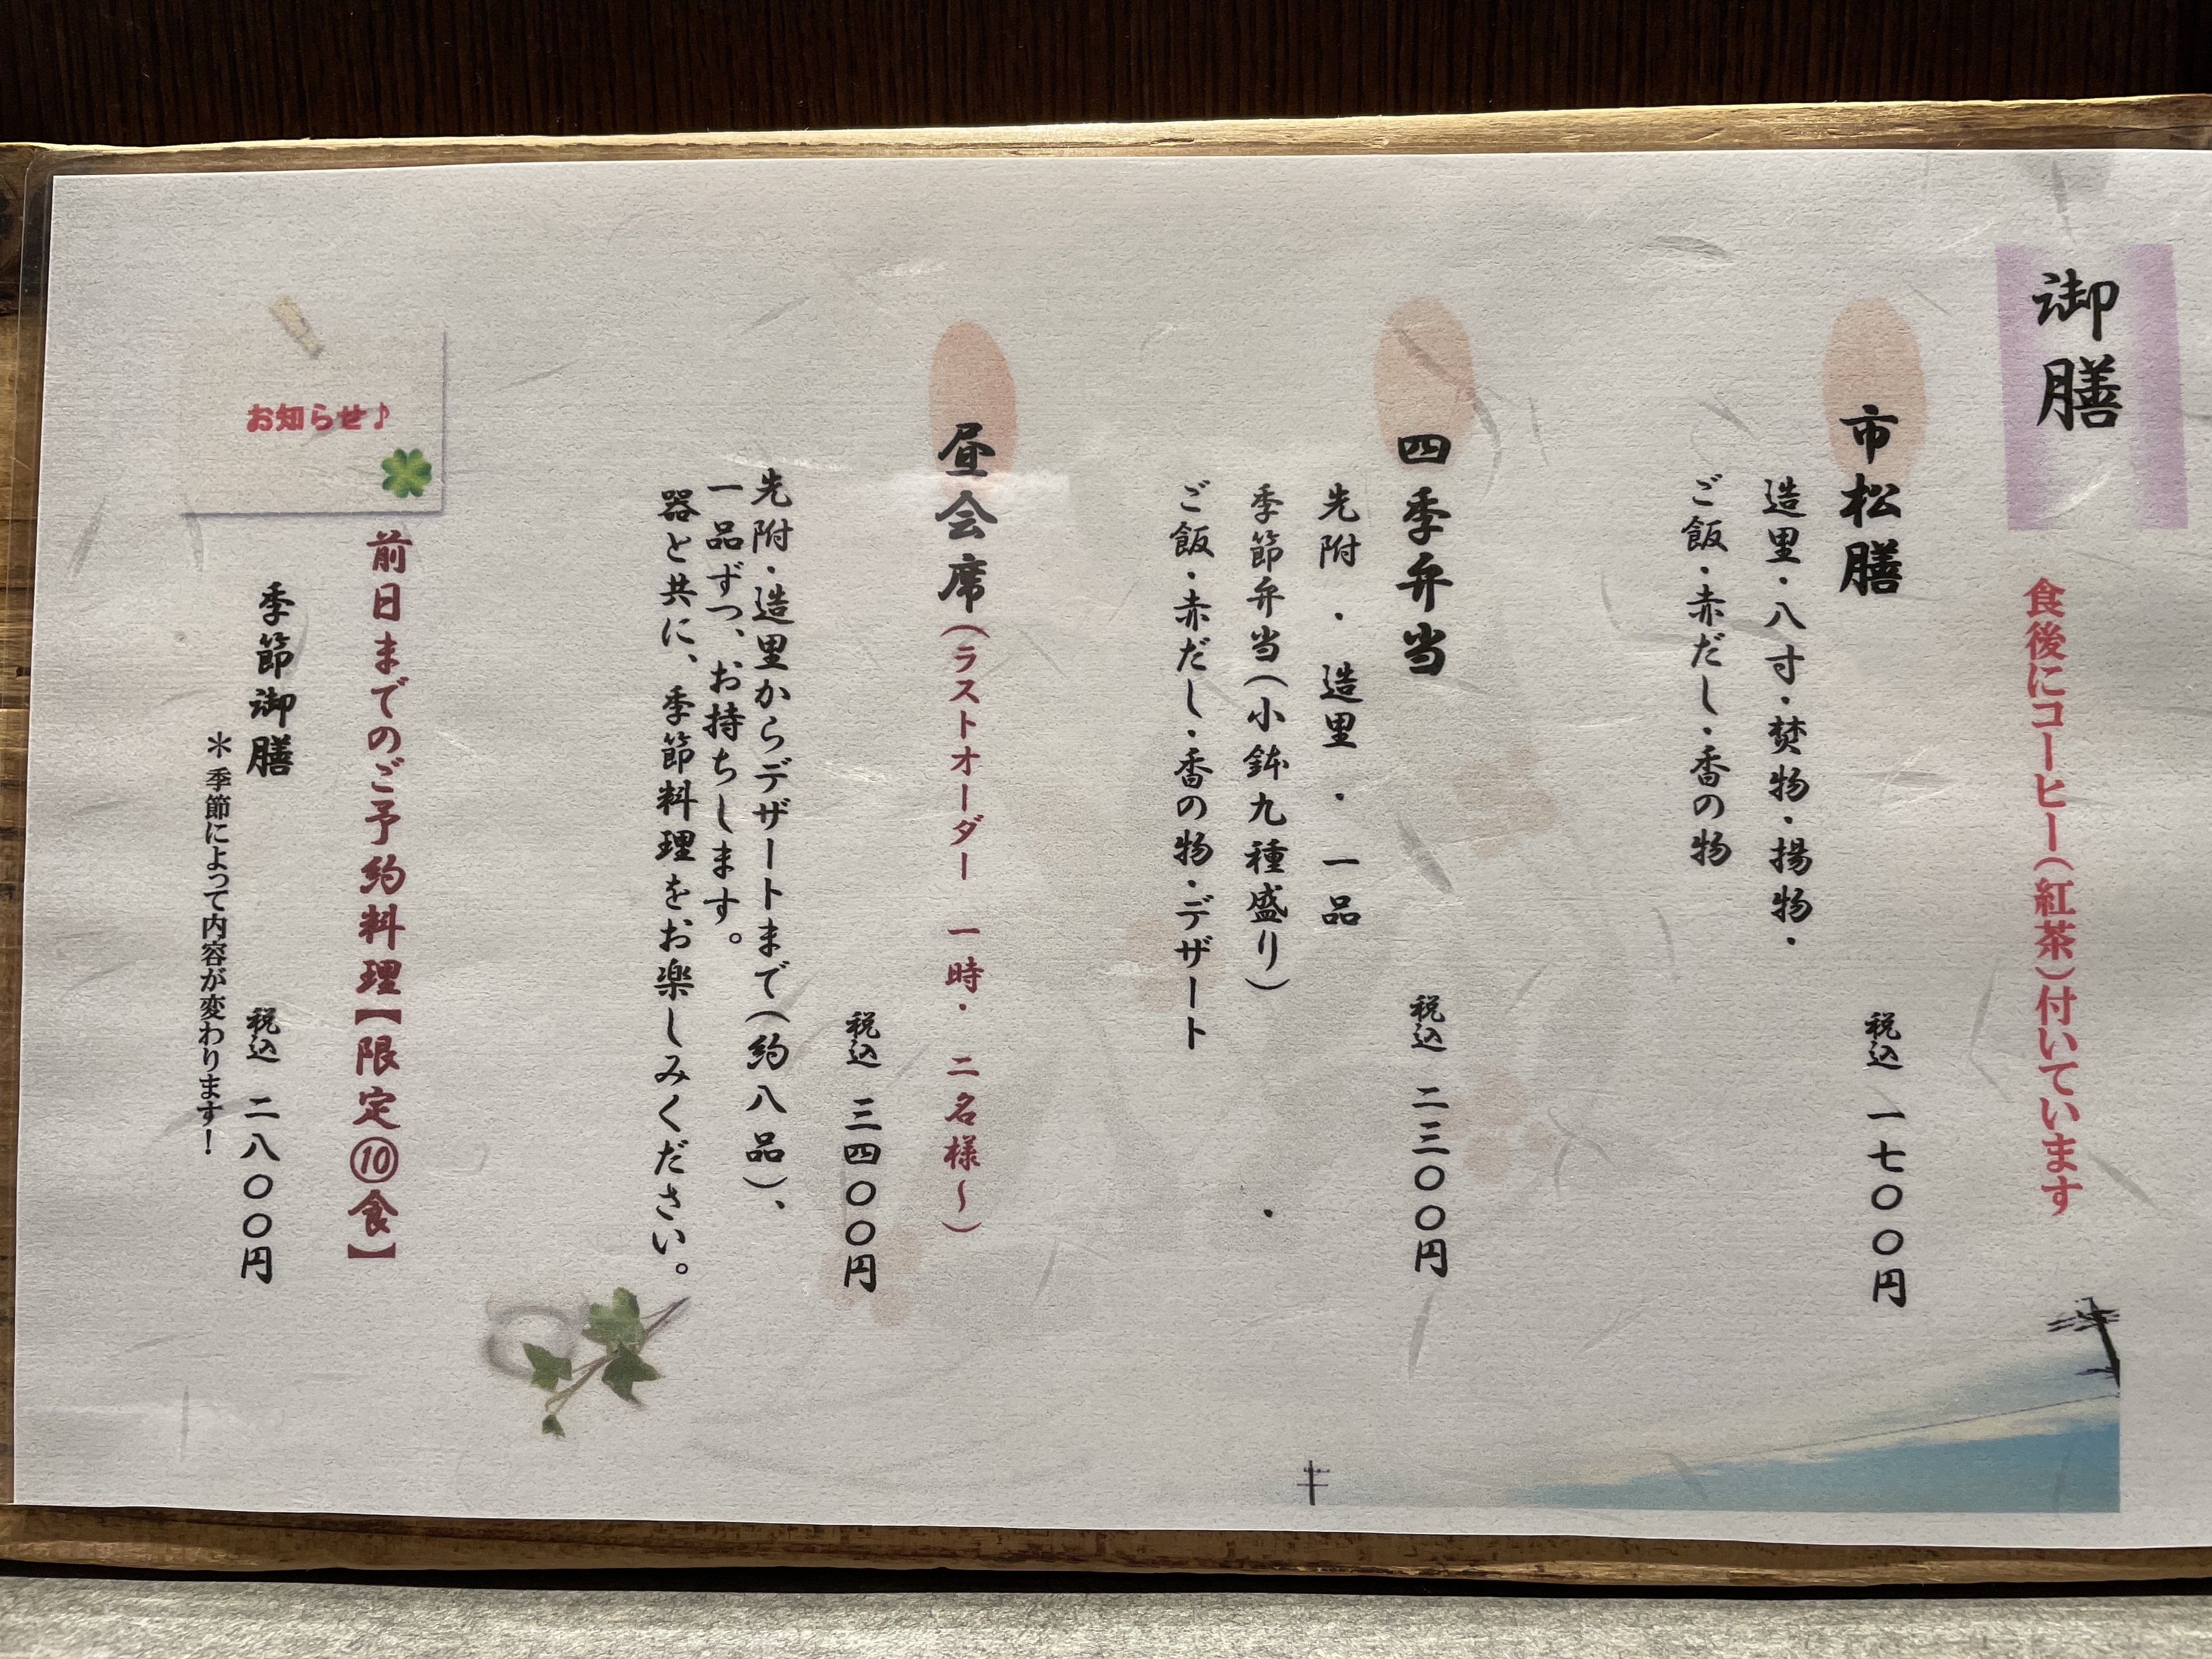 御膳
食後にコーヒー（紅茶）付いています
市松膳
税込 一七〇〇円
造里・八寸・焚物・揚物・
ご飯・赤だし・香の物
四季弁当
税込 二三〇〇円
先附 ・ 造里 ・ 一品
季節弁当（小鉢九種盛り） ・
ご飯・赤だし・香の物・デザート
昼会席（ラストオーダー 一時・二名様～）
税込 三四〇〇円
先附・造里からデザートまで（約八品）、
一品ずつ、お持ちします。
器と共に、季節料理をお楽しみください。
お知らせ♪
前日までのご予約料理【限定⑩食】
季節御膳
税込 二八〇〇円
＊季節によって内容が変わります！